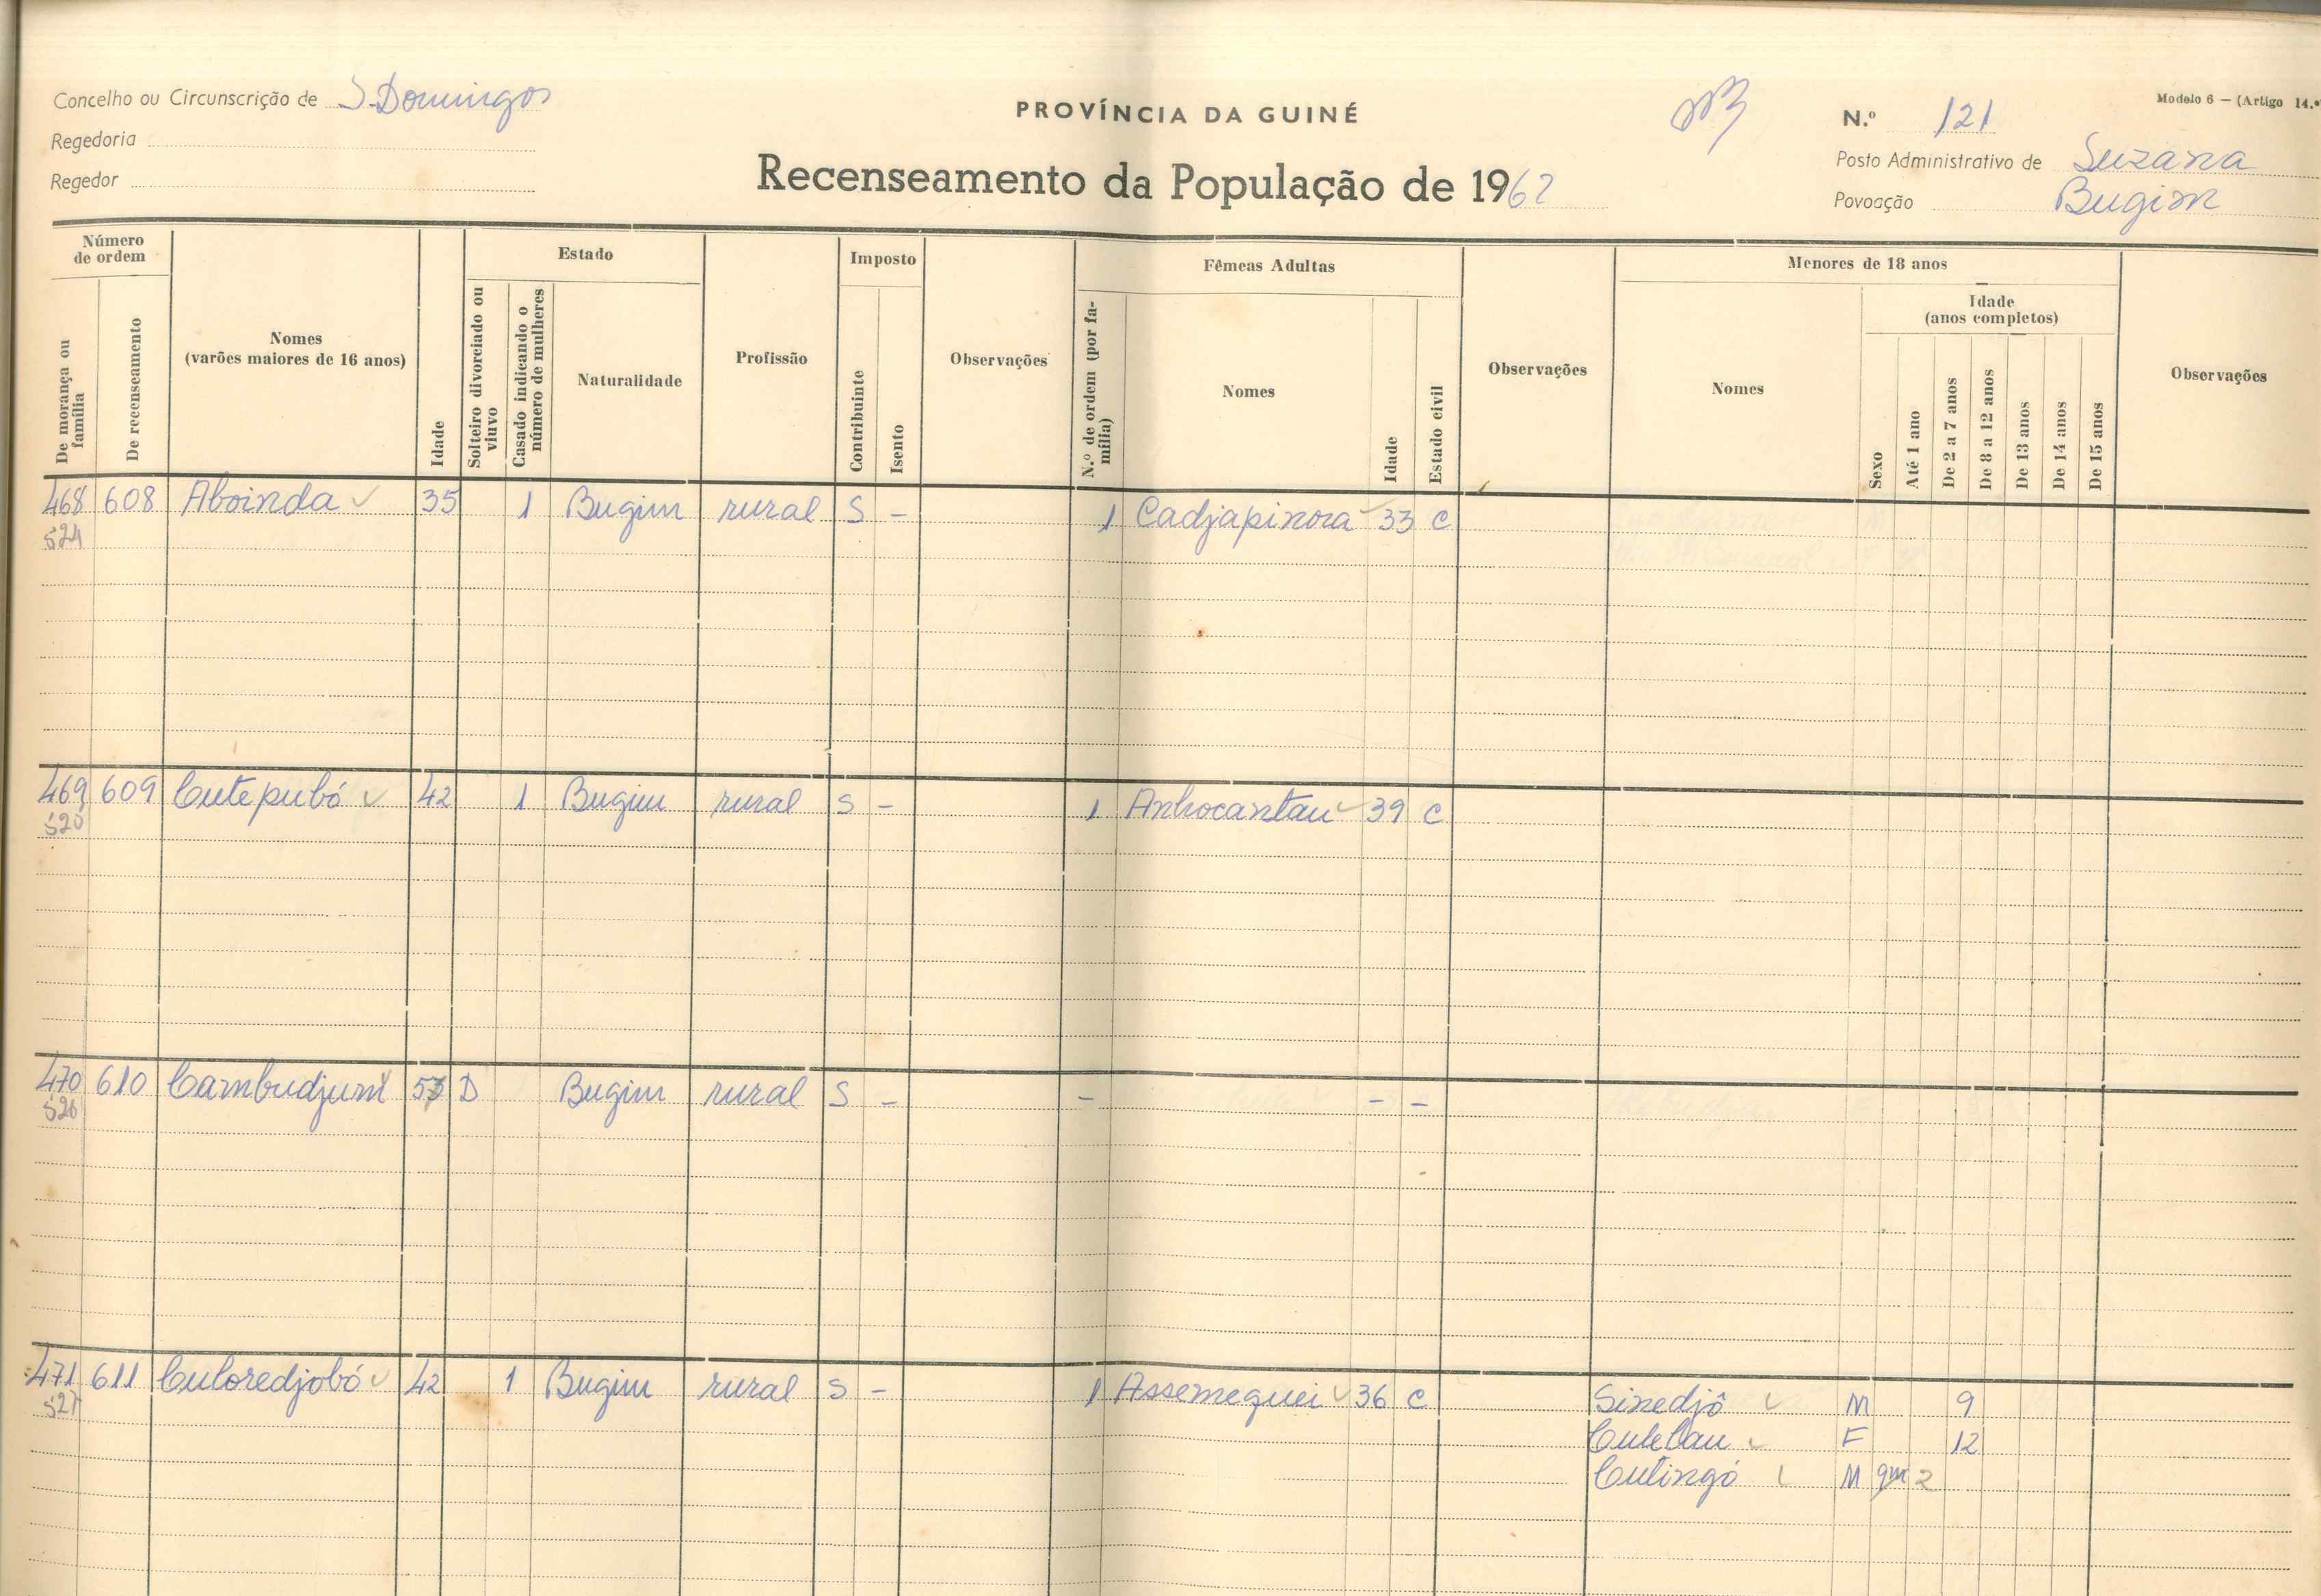 Concelho ou Circunscrição de S. Domingos
Regedoria
Regedor
PROVÍNCIA DA GUINÉ
Recenseamento da População de 1962
Modelo 6 — (Artigo 14.º
N.º 121
Posto Administrativo de Suzana
Povoação Bugim
Número de ordem
De morança ou família
De recenseamento
Nomes
(varões maiores de 16 anos)
Idade
Estado
Solteiro divorciado ou viuvo
Casado indicando o número de mulheres
Naturalidade
Profissão
Imposto
Contribuinte
Isento
Observações
Fêmeas Adultas
N.º de ordem (por família)
Nomes
Idade
Estado civil
Observações
Menores de 18 anos
Nomes
Sexo
Idade
(anos completos)
Até 1 ano
De 2 a 7 anos
De 8 a 12 anos
De 13 anos
De 14 anos
De 15 anos
Observações
468 608 Aboinda 35 1 Bugim rural S - 1 Cadjapinora 33 C
524
469 609 Cutepubó 42 1 Bugim rural S - 1 Anhocantau 39 C
525
470 610 Cambudjum D Bugim rural S - - - -
526
471 611 Culoredjobó 42 1 Bugim rural S - 1 Assemeguei 36 C Sinedjô M 9
527
F 12
Cutingó M 9m 2